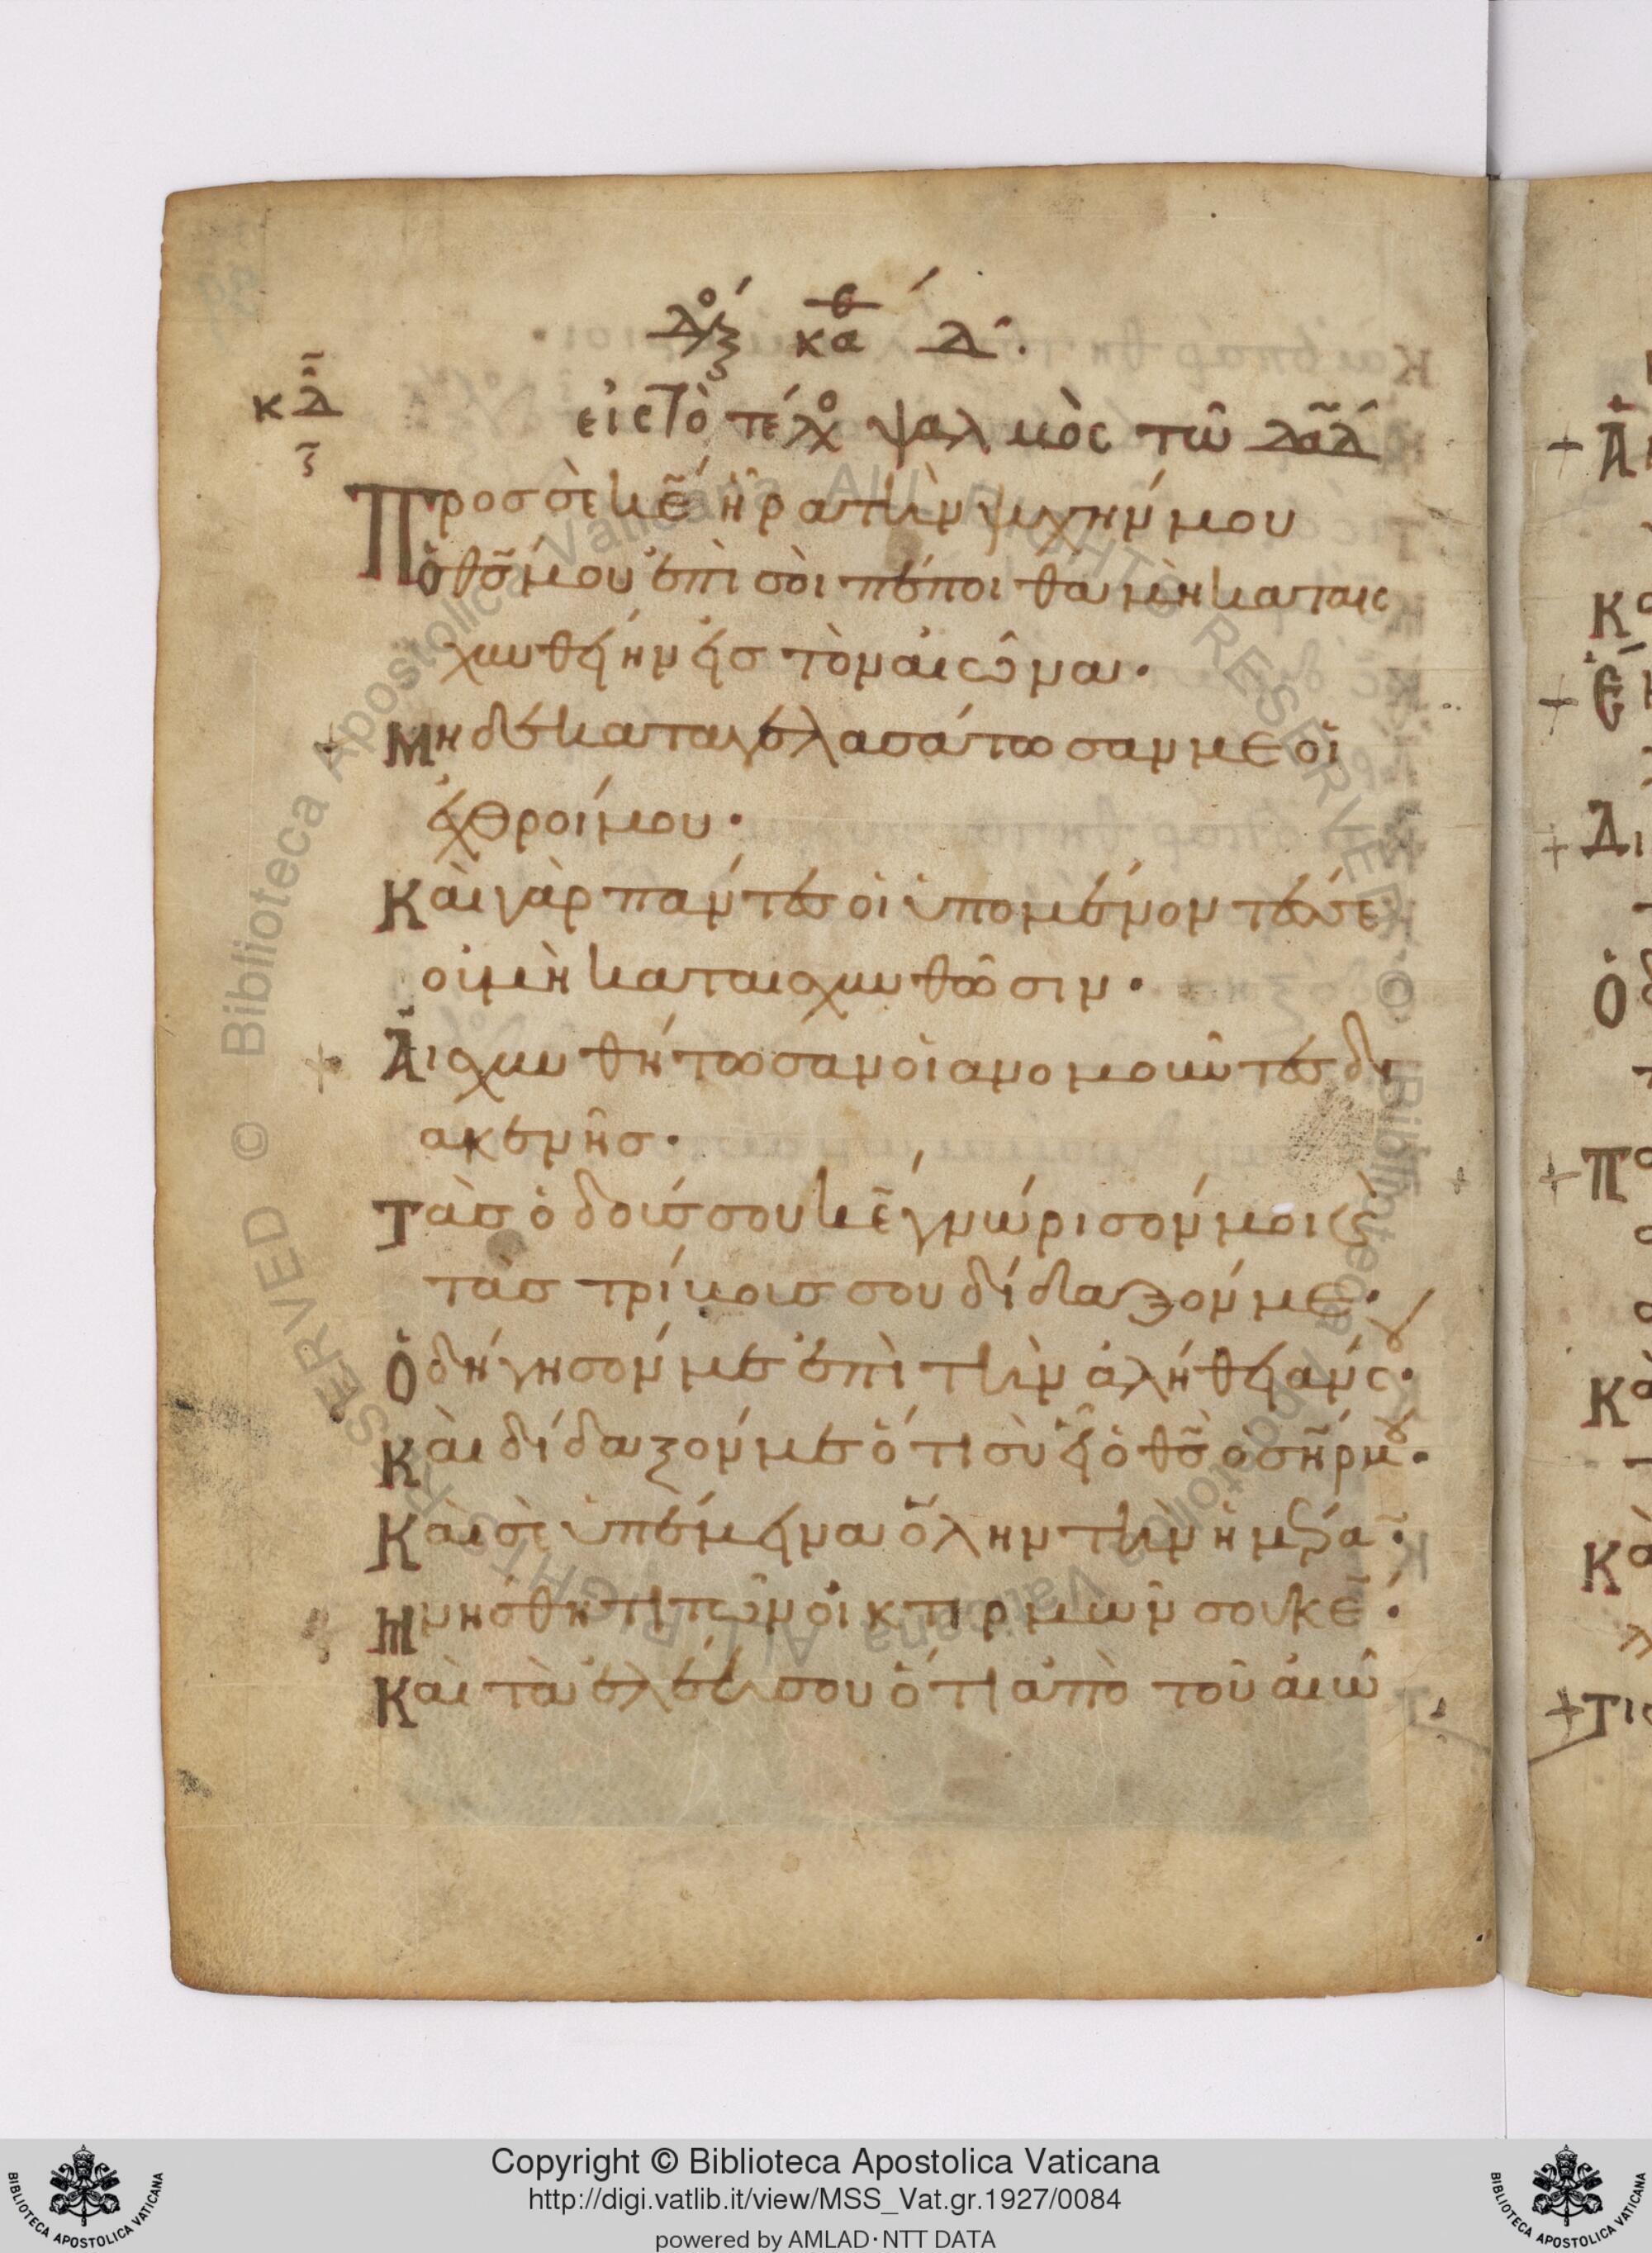 δόξ κάθ δ.
κδ
εἰς τὸ τέλο ψαλμὸς τῶ δᾱδ
Προς σὲ κε̄ ἦρα τὴν ψυχήν μου
ὁ θς̄ μου ἐπὶ σοὶ πέποιθα μὴ καταις
χυνθείην εἰς τὸν αἰῶνα·
Μηδὲ καταγελασάτωσαν με οἱ
ἐχθροί μου·
Καὶ γὰρ πάντες οἱ ὑπομένοντές σε
οὐ μὴ καταισχυνθῶσιν·
Αἰσχυνθήτωσαν οἱ ανομοῦντες δι
ακενῆς·
Τὰς ὁδούς σου κε̄ γνώρισόν μοι καὶ
τὰς τρίβους σου δίδαξόν με·
Ὁδήγησόν με ἐπὶ τὴν ἀλήθειάν σου·
Καὶ δίδαξόν με ὅτι σὺ εἶ ὁ θς̄ ὁ σηρ̄ μου·
Καὶ σὲ ὑπέμεινα ὅλην τὴν ἡμέραν·
Μνήσθητι τῶν οἰκτιρμῶν σου κε̄·
Καὶ τὰ ἐλέη σου ὅτι ἀπὸ τοῦ αἰῶ
© Biblioteca Apostolica Vaticana ALL RIGHTS RESERVED
Copyright © Biblioteca Apostolica Vaticana
http://digi.vatlib.it/view/MSS_Vat.gr.1927/0084
powered by AMLAD·NTT DATA
BIBLIOTECA APOSTOLICA VATICANA
BIBLIOTECA APOSTOLICA VATICANA